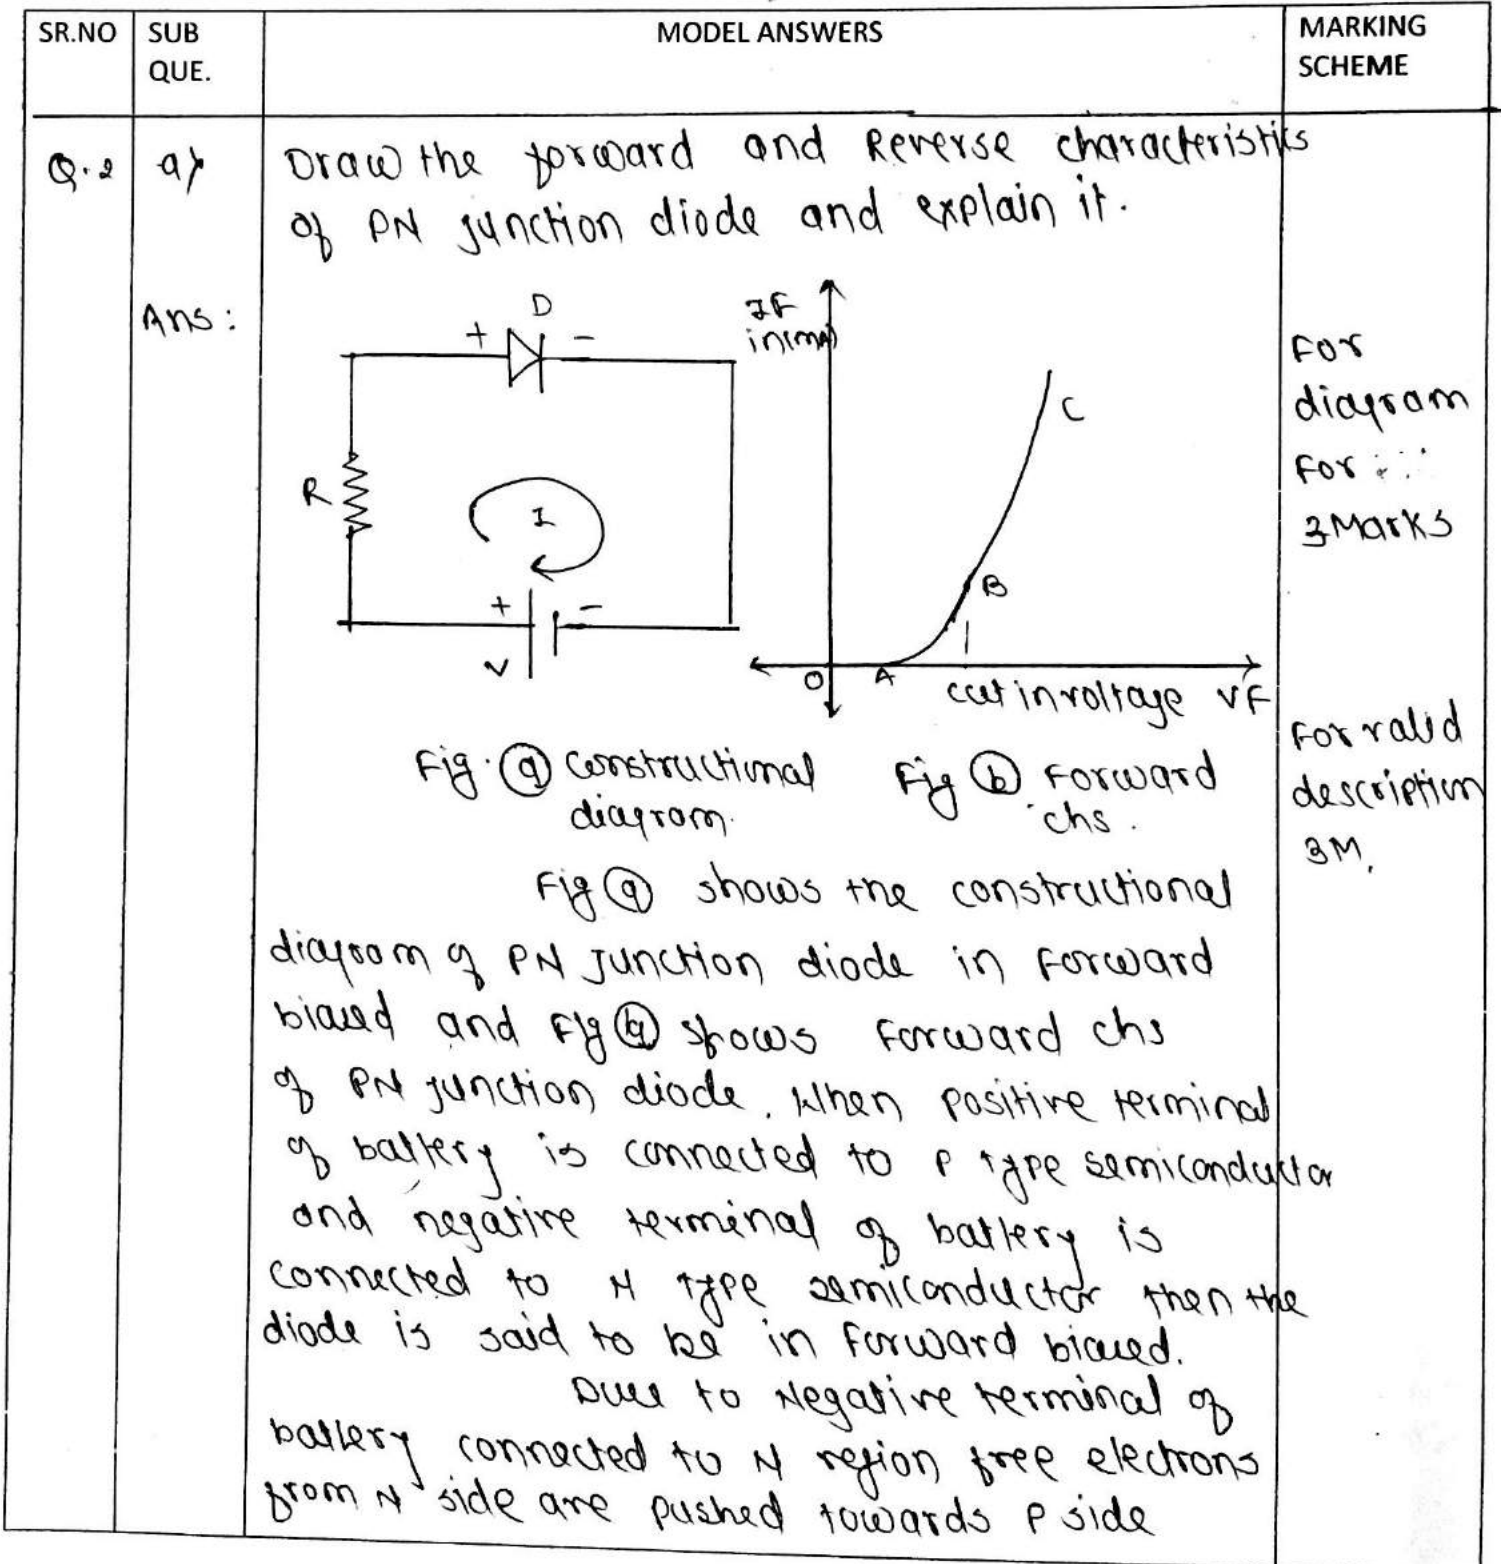 SR.NO SUB QUE. MODEL ANSWERS MARKING SCHEME
Q.2 a) Draw the forward and Reverse characteristics
of PN junction diode and explain it.
Ans:
D
+ -
R
I
+ -
V
IF
in(mA)
C
B
O A
cut in voltage VF
For
diagram
For
3 Marks
Fig. (a) constructional
diagram.
Fig (b) Forward
chs.
For valid
description
3M.
Fig (a) shows the constructional
diagram of PN Junction diode in Forward
biased and Fig (b) shows Forward chs
of PN junction diode. When positive terminal
of battery is connected to P type semiconductor
and negative terminal of battery is
connected to N type semiconductor then the
diode is said to be in Forward biased.
Due to Negative terminal of
battery connected to N region free electrons
from N side are pushed towards P side